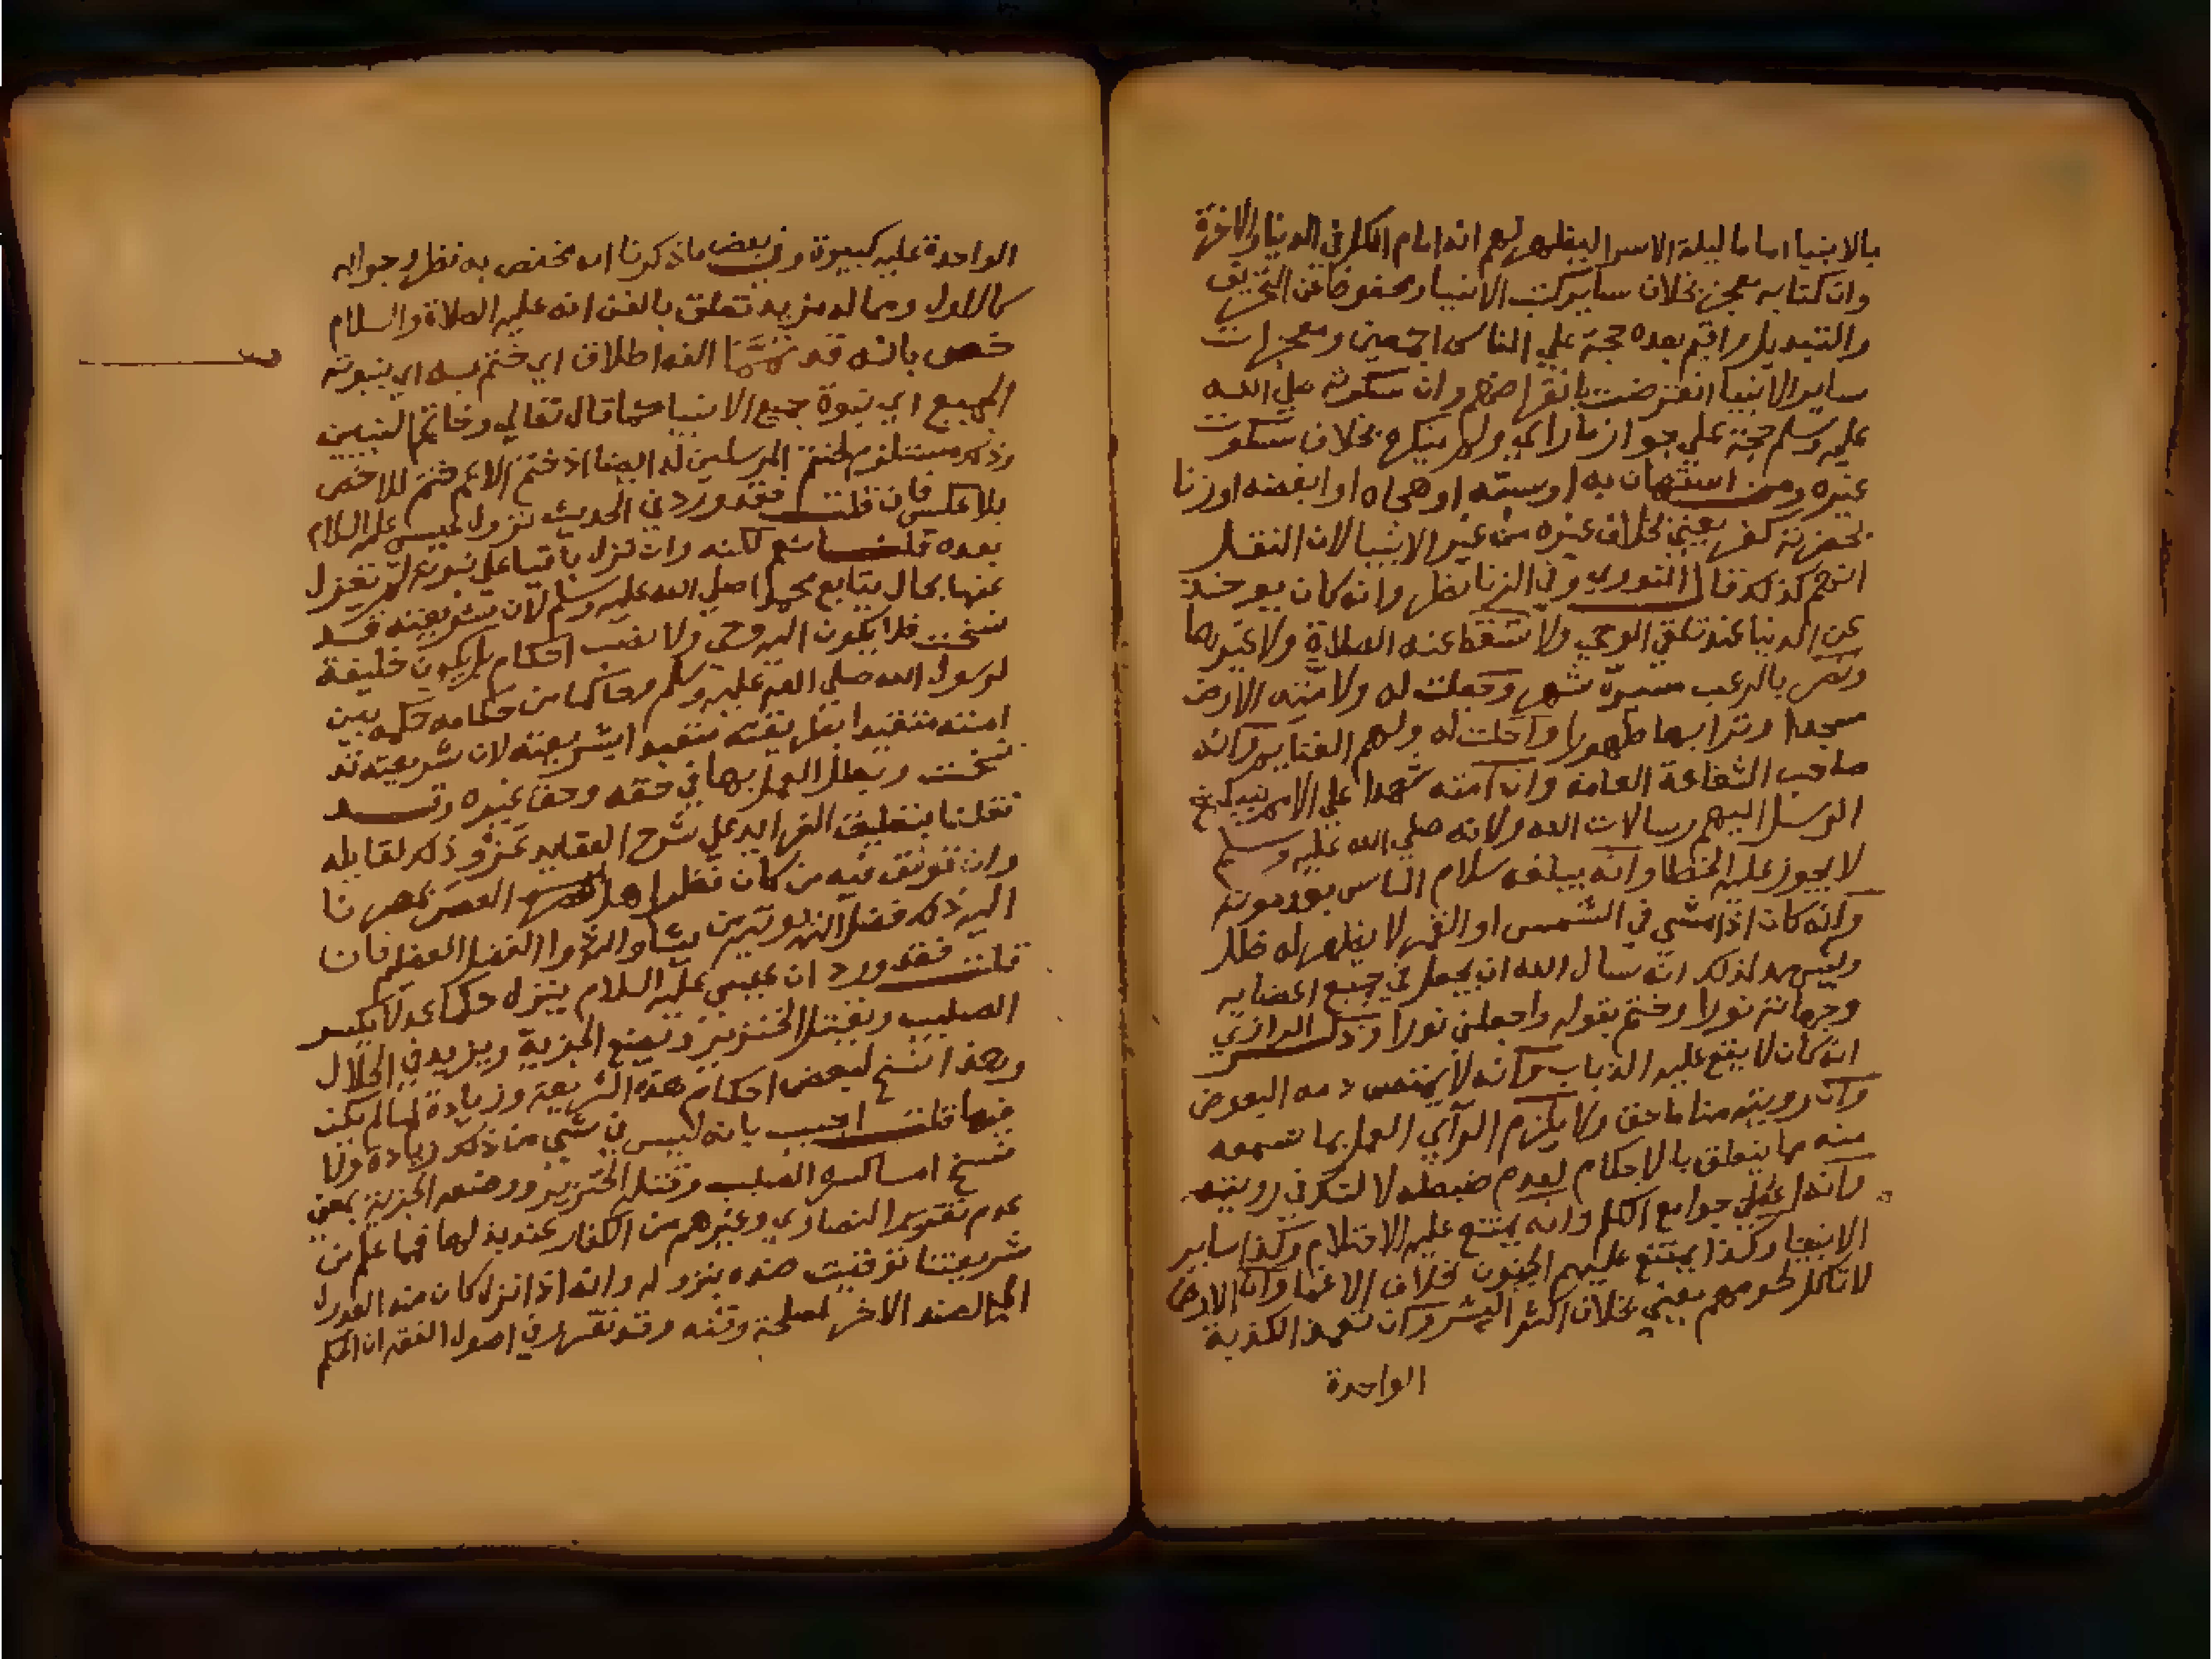 بالانبيا اماما ليلة الاسرا ليظهر لهم انه امام الكل في الدنيا والاخرة
وان كتابه معجز بخلاف ساير كتب الانبيا ومحفوظ عن التحريف
والتبديل واقيم بعده حجة علي الناس اجمعين ومعجزات
ساير الانبيا انقرضت بانقراضهم وان سكوته صلي الله
عليه وسلم حجة علي جواز ما راي ولم ينكره بخلاف سكوت
غيره ومن استهان به او سبه او هجاه او ابغضه او زنا
بحضرته كفر يعني بخلاف غيره من غير الانبيا لان النقل
انهم كذلك قال النووي وفي الزنا نظر وانه كان يوخذ
عن الدنيا عند تلقي الوحي ولا تسقط عنه الصلاة ولا غيرها
ونصر بالرعب مسيرة شهر وجعلت له ولامته الارض
مسجدا وترابها طهورا واحلت له ولهم الغنايم وانه
صاحب الشفاعة العامة وان امته شهدا علي الامم بتبليغ
الرسل اليهم رسالات الله ولانه صلي الله عليه وسلم
لا يجوز عليه الخطا وانه يبلغه سلام الناس بعد موته
وانه كان اذا مشي في الشمس او القمر لا يظهر له ظل
ويشهد لذلك انه سال الله ان يجعل في جميع اعضايه
وجهاته نورا وختم بقوله واجعلني نورا وذكر الرازي
انه كان لا يقع عليه الذباب وانه لا يمتص دمه البعوض
وان رويته مناما حق ولا يلزم الرآي العمل بما سمعه
منه مما يتعلق بالاحكام لعدم ضبطه لا للشك في رويته
وانه اعطي جوامع الكلم وانه يمتنع عليه الاحتلام وكذا ساير
الانبيا وكذا يمتنع عليهم الجنون بخلاف الاغما وان الارض
لا تاكل لحومهم يعني بخلاف اكثر البشر وان تعمد الكذبة
الواحدة
الواحدة عليه كبيرة وفي بعض ما ذكرنا انه مختص به نظر وجوابه
كالاول ومما له مزيد تعلق بالفن انه عليه الصلاة والسلام
خص بانه قد تمما الفه اطلاق اي ختم به اي بنبوته
الجميع اي نبوة جميع الانبيا كما قال تعالي وخاتم النبيين
وذلك مستلزم لختم المرسلين له ايضا اذ ختم الاعم ختم للاخص
بلا عكس فان قلت فقد ورد في الحديث نزول عيسي عليه السلام
بعده قلنا نعم لكنه وان نزل باقيا علي نبوته لم يعزل
عنها بحال يتابع محمدا صلي الله عليه وسلم لان شريعته قد
نسخت فلا يكون اليه وحي ولا نصب احكام بل يكون خليفة
لرسول الله صلي الله عليه وسلم وحاكما من حكامه حكمه بين
امته متقيدا بطريقته متعبدا بشريعته لان شريعته قد
نسخت وبطل العمل بها في حقه وحق غيره وقد
نقلنا بتعليق الفرايد علي شرح العقايد عزو ذلك لقايله
وان توقف فيه من كان نظر اهل العصر كعصرنا
اليه ذلك فضل الله يوتيه من يشا والله ذوا الفضل العظيم فان
قلت فقد ورد ان عيسي عليه السلام ينزل حكما عدلا يكسر
الصليب ويقتل الخنزير ويضع الجزية ويزيد في الحلال
وهذا نسخ لبعض احكام هذه الشريعة وزيادة لما لم يكن
فيها قلت اجيب بانه ليس في شي من ذلك زيادة ولا
نسخ اما كسره الصليب وقتله الخنزير ووضعه الجزية بمعني
عدم تقرير النصاري وغيرهم من الكفار عند بذلها فمما علم من
شريعتنا توقيت ضده بنزوله وانه اذا نزل كان منه العدول
الي الضد الاخر لمصلحة وقته وقد تقرر في اصول الفقه ان الحكم